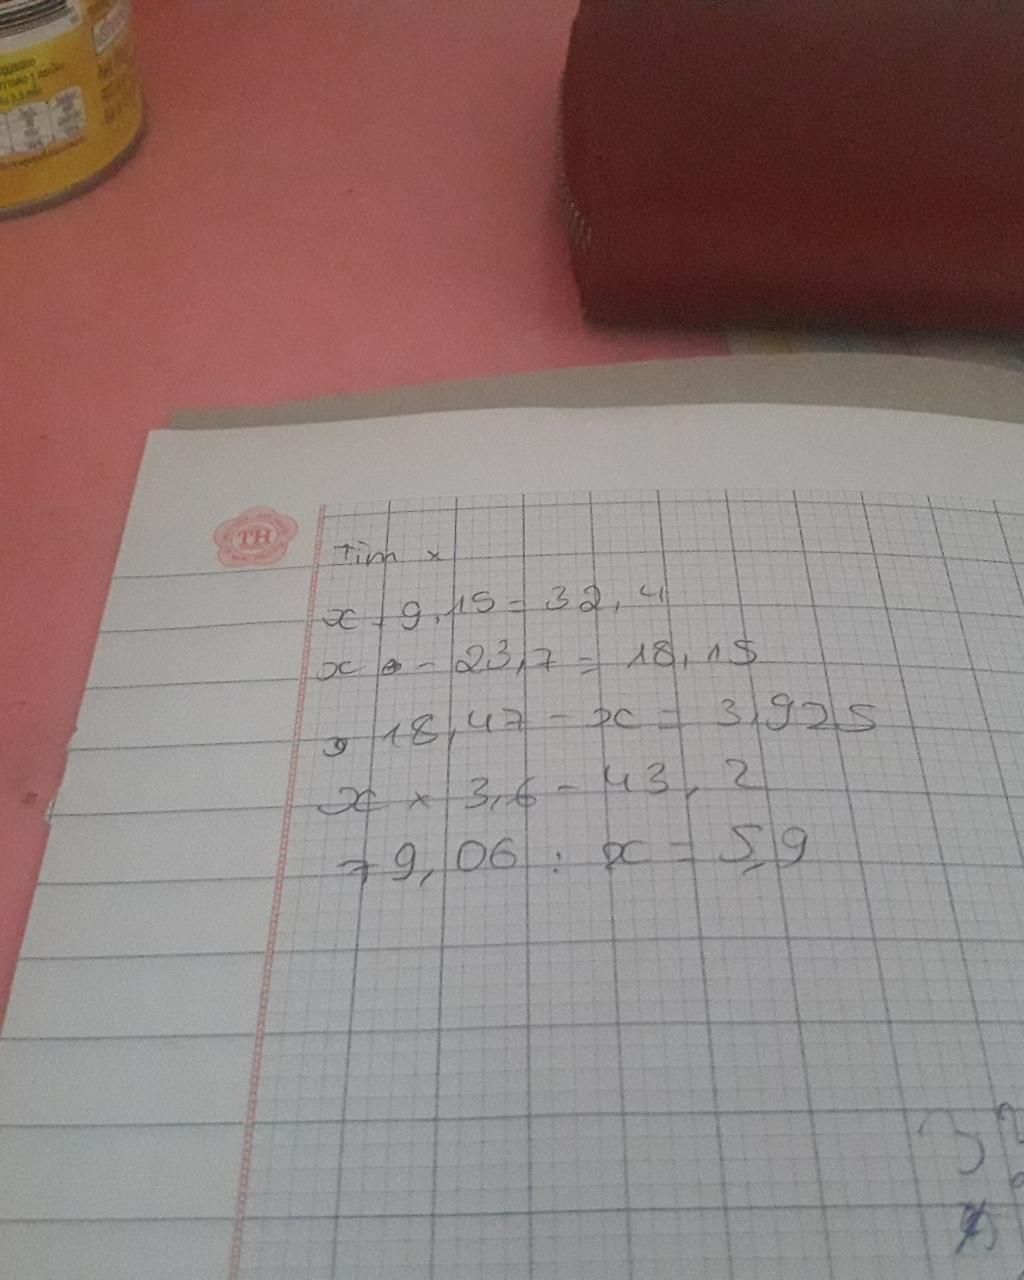 TH
Tìm x
x + 9,15 = 32,4
x - 23,7 = 18,15
18,47 - x = 3,925
x × 3,6 = 43,2
79,06 : x = 5,9